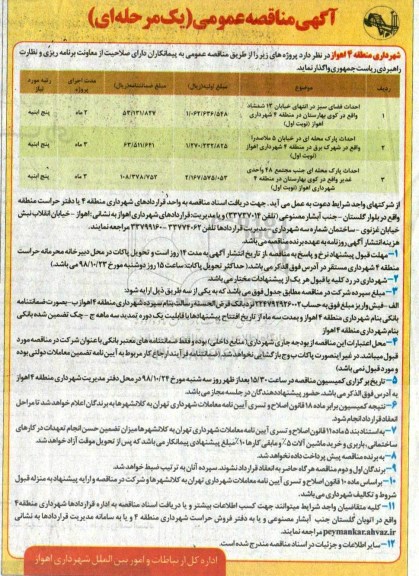 آگهی مناقصه عمومی (یک مرحله‌ای)
شهرداری منطقه ۴ اهواز در نظر دارد پروژه های زیر را از طریق مناقصه عمومی به پیمانکاران دارای صلاحیت از معاونت برنامه ریزی و نظارت
راهبردی ریاست جمهوری واگذار نماید.
ردیف موضوع مبلغ اولیه(ریال) مبلغ ضمانتنامه(ریال) مدت اجرای پروژه رتبه مورد نیاز
۱ احداث فضای سبز در انتهای خیابان ۱۳ ششاد واقع در کوی بهارستان در منطقه ۴ شهرداری اهواز (نوبت اول) ۱/۰۶۲/۶۳۶/۵۴۸ ۵۳/۱۳۱/۸۲۷ ۲ ماه پنج ابنیه
۲ احداث پارک محله ای در خیابان ۵ ملاصدرا واقع در شهرک برق در منطقه ۴ شهرداری اهواز (نوبت اول) ۱/۲۷۰/۲۳۲/۸۲۵ ۶۳/۵۱۱/۶۴۱ ۳ ماه پنج ابنیه
۳ احداث پارک محله ای جنب مجتمع ۴۸ واحدی غدیر واقع در کوی بهارستان در منطقه ۴ شهرداری اهواز (نوبت اول) ۲/۱۶۷/۵۷۵/۰۵۳ ۱۰۸/۳۷۸/۷۵۲ ۳ ماه پنج ابنیه
از شرکتهای واجد شرایط دعوت به عمل می آید. جهت دریافت اسناد مناقصه به واحد قراردادهای شهرداری منطقه ۴ یا دفتر حراست منطقه
واقع در بلوار گلستان - جنب آبشار مصنوعی (تلفن ۳۳۷۳۷۰۱۴) و یا مدیریت قراردادهای شهرداری اهواز به نشانی: اهواز - خیابان انقلاب نبش
خیابان غزنوی - ساختمان شماره سه شهرداری - مدیریت قراردادها تلفن ۳۳۷۷۴۰۶۲ - ۳۳۷۹۹۱۶۰ مراجعه نمایند.
هزینه انتشار آگهی روزنامه به عهده برنده مناقصه می باشد.
۱- مهلت قبول پیشنهاد نرخ و پاسخ به مناقصه از تاریخ انتشار آگهی به مدت ۱۴ روز است و تحویل پاکات در محل دبیرخانه محرمانه حراست
منطقه ۴ شهرداری مستقر در آدرس فوق الذکر می باشد. (حداکثر تحویل پاکات ساعت ۱۵ روز دوشنبه مورخ ۹۸/۱۰/۲۳ می باشد)
۲- شهرداری در رد کلیه یا قبول هر یک از پیشنهادات مختار می باشد.
۳- مبلغ سپرده شرکت در مناقصه مطابق جدول فوق می باشد که به یکی از سه طریق ذیل ارایه شود:
بانکی بنام شهرداری منطقه ۴ اهواز و بمدت سه ماه از تاریخ افتتاح پیشنهادها با قابلیت یک دوره تمدید سه ماهه ج - چک تضمین شده بانکی
بنام شهرداری منطقه ۴ اهواز
۴- محل اعتبارات این مناقصه از بودجه جاری شهرداری (منابع داخلی) بوده و فقط ضمانتنامه های معتبر بانکی با عنوان شرکت در مناقصه مورد
قبول میباشد در غیر اینصورت پاکات ب وج بازگشایی نخواهد شد.
و مورد قبول نمی باشد)
۵- تاریخ برگزاری کمیسیون مناقصه در ساعت ۱۵/۳۰ بعداز ظهر روز سه شنبه مورخ ۹۸/۱۰/۲۴ در محل دفتر مدیریت شهرداری منطقه ۴ اهواز
به آدرس فوق الذکر می باشد. حضور پیشنهاددهندگان در جلسه مجاز می باشد.
۶- نتیجه کمیسیون برابر ماده ۱۸ قانون اصلاح و تسری آیین نامه معاملات شهرداری تهران به کلانشهرها به برندگان اعلام خواهد شد تا مراحل
انعقاد قرارداد انجام شود.
۷- به استناد بند ۵ ماده ۱۱ قانون اصلاح و تسری آیین نامه معاملات شهرداری تهران به کلانشهرها میزان تضمین حسن انجام تعهدات در کارهای
ساختمانی، باربری و خرید ماشین آلات ۵٪ و مابقی کارها ۱۰٪ مبلغ پیشنهادی پیمانکار می باشد که پس از تحویل موقت آزاد خواهد شد.
۸- به برنده مناقصه پیش پرداخت داده نخواهد شد.
۹- برندگان اول و دوم مناقصه هر گاه حاضر به انعقاد قرارداد نشوند، سپرده آنان به ترتیب ضبط خواهد شد.
۱۰- بر اساس ماده ۱۰ قانون اصلاح و تسری آیین نامه معاملات شهرداری تهران به کلانشهرها و شرکت در مناقصه و ارایه پیشنهاد به منزله قبول
شروط و تکالیف شهرداری می باشد.
۱۱- کلیه متقاضیان واجد شرایط میتوانند جهت کسب اطلاعات بیشتر و یا دریافت اسناد مناقصه به اداره قراردادها شهرداری منطقه ۴
واقع در اتوبان گلستان جنب آبشار مصنوعی و یا به دفتر فروش حراست شهرداری منطقه ۴ و یا به سامانه مدیریت قراردادها به نشانی
peymankar.ahvaz.ir مراجعه نمایند.
۱۲- سایر اطلاعات و جزئیات در اسناد مناقصه مندرج شده است.
اداره کل ارتباطات و امور بین الملل شهرداری اهواز